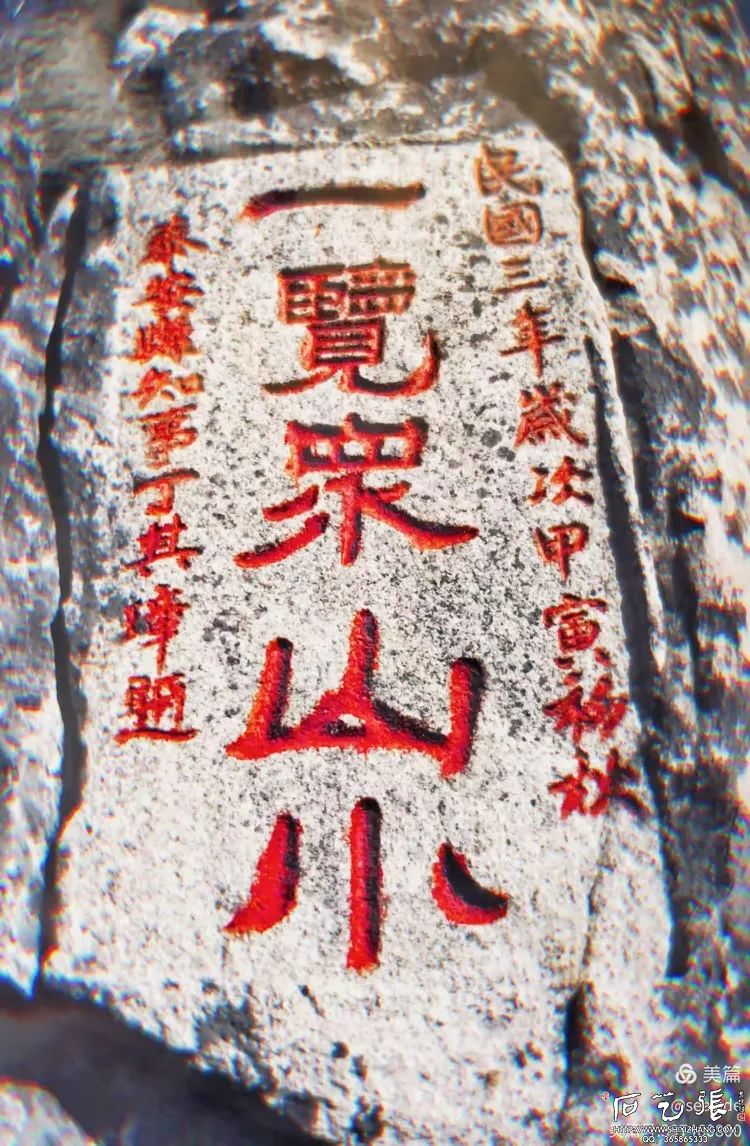 民國三年歲次甲寅初秋
一覽眾山小
泰安縣知事丁其璋題
美篇
石艺張
QQ: 365865333